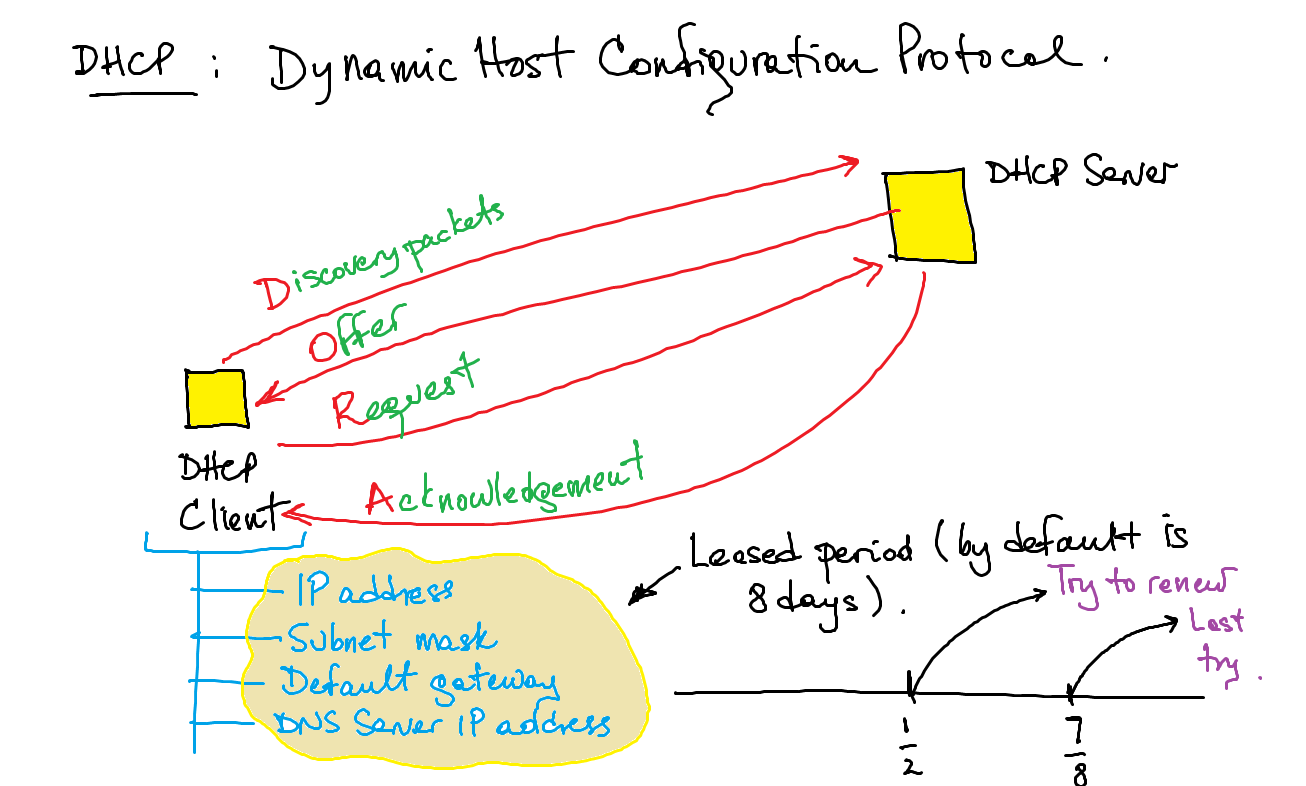 DHCP : Dynamic Host Configuration Protocol.
DHCP Server
Discovery packets
Offer
Request
DHCP
Client
Acknowledgement
IP address
Subnet mask
Default gateway
DNS Server IP address
Leased period (by default is
8 days).
Try to renew
Last
try.
1
2
7
8